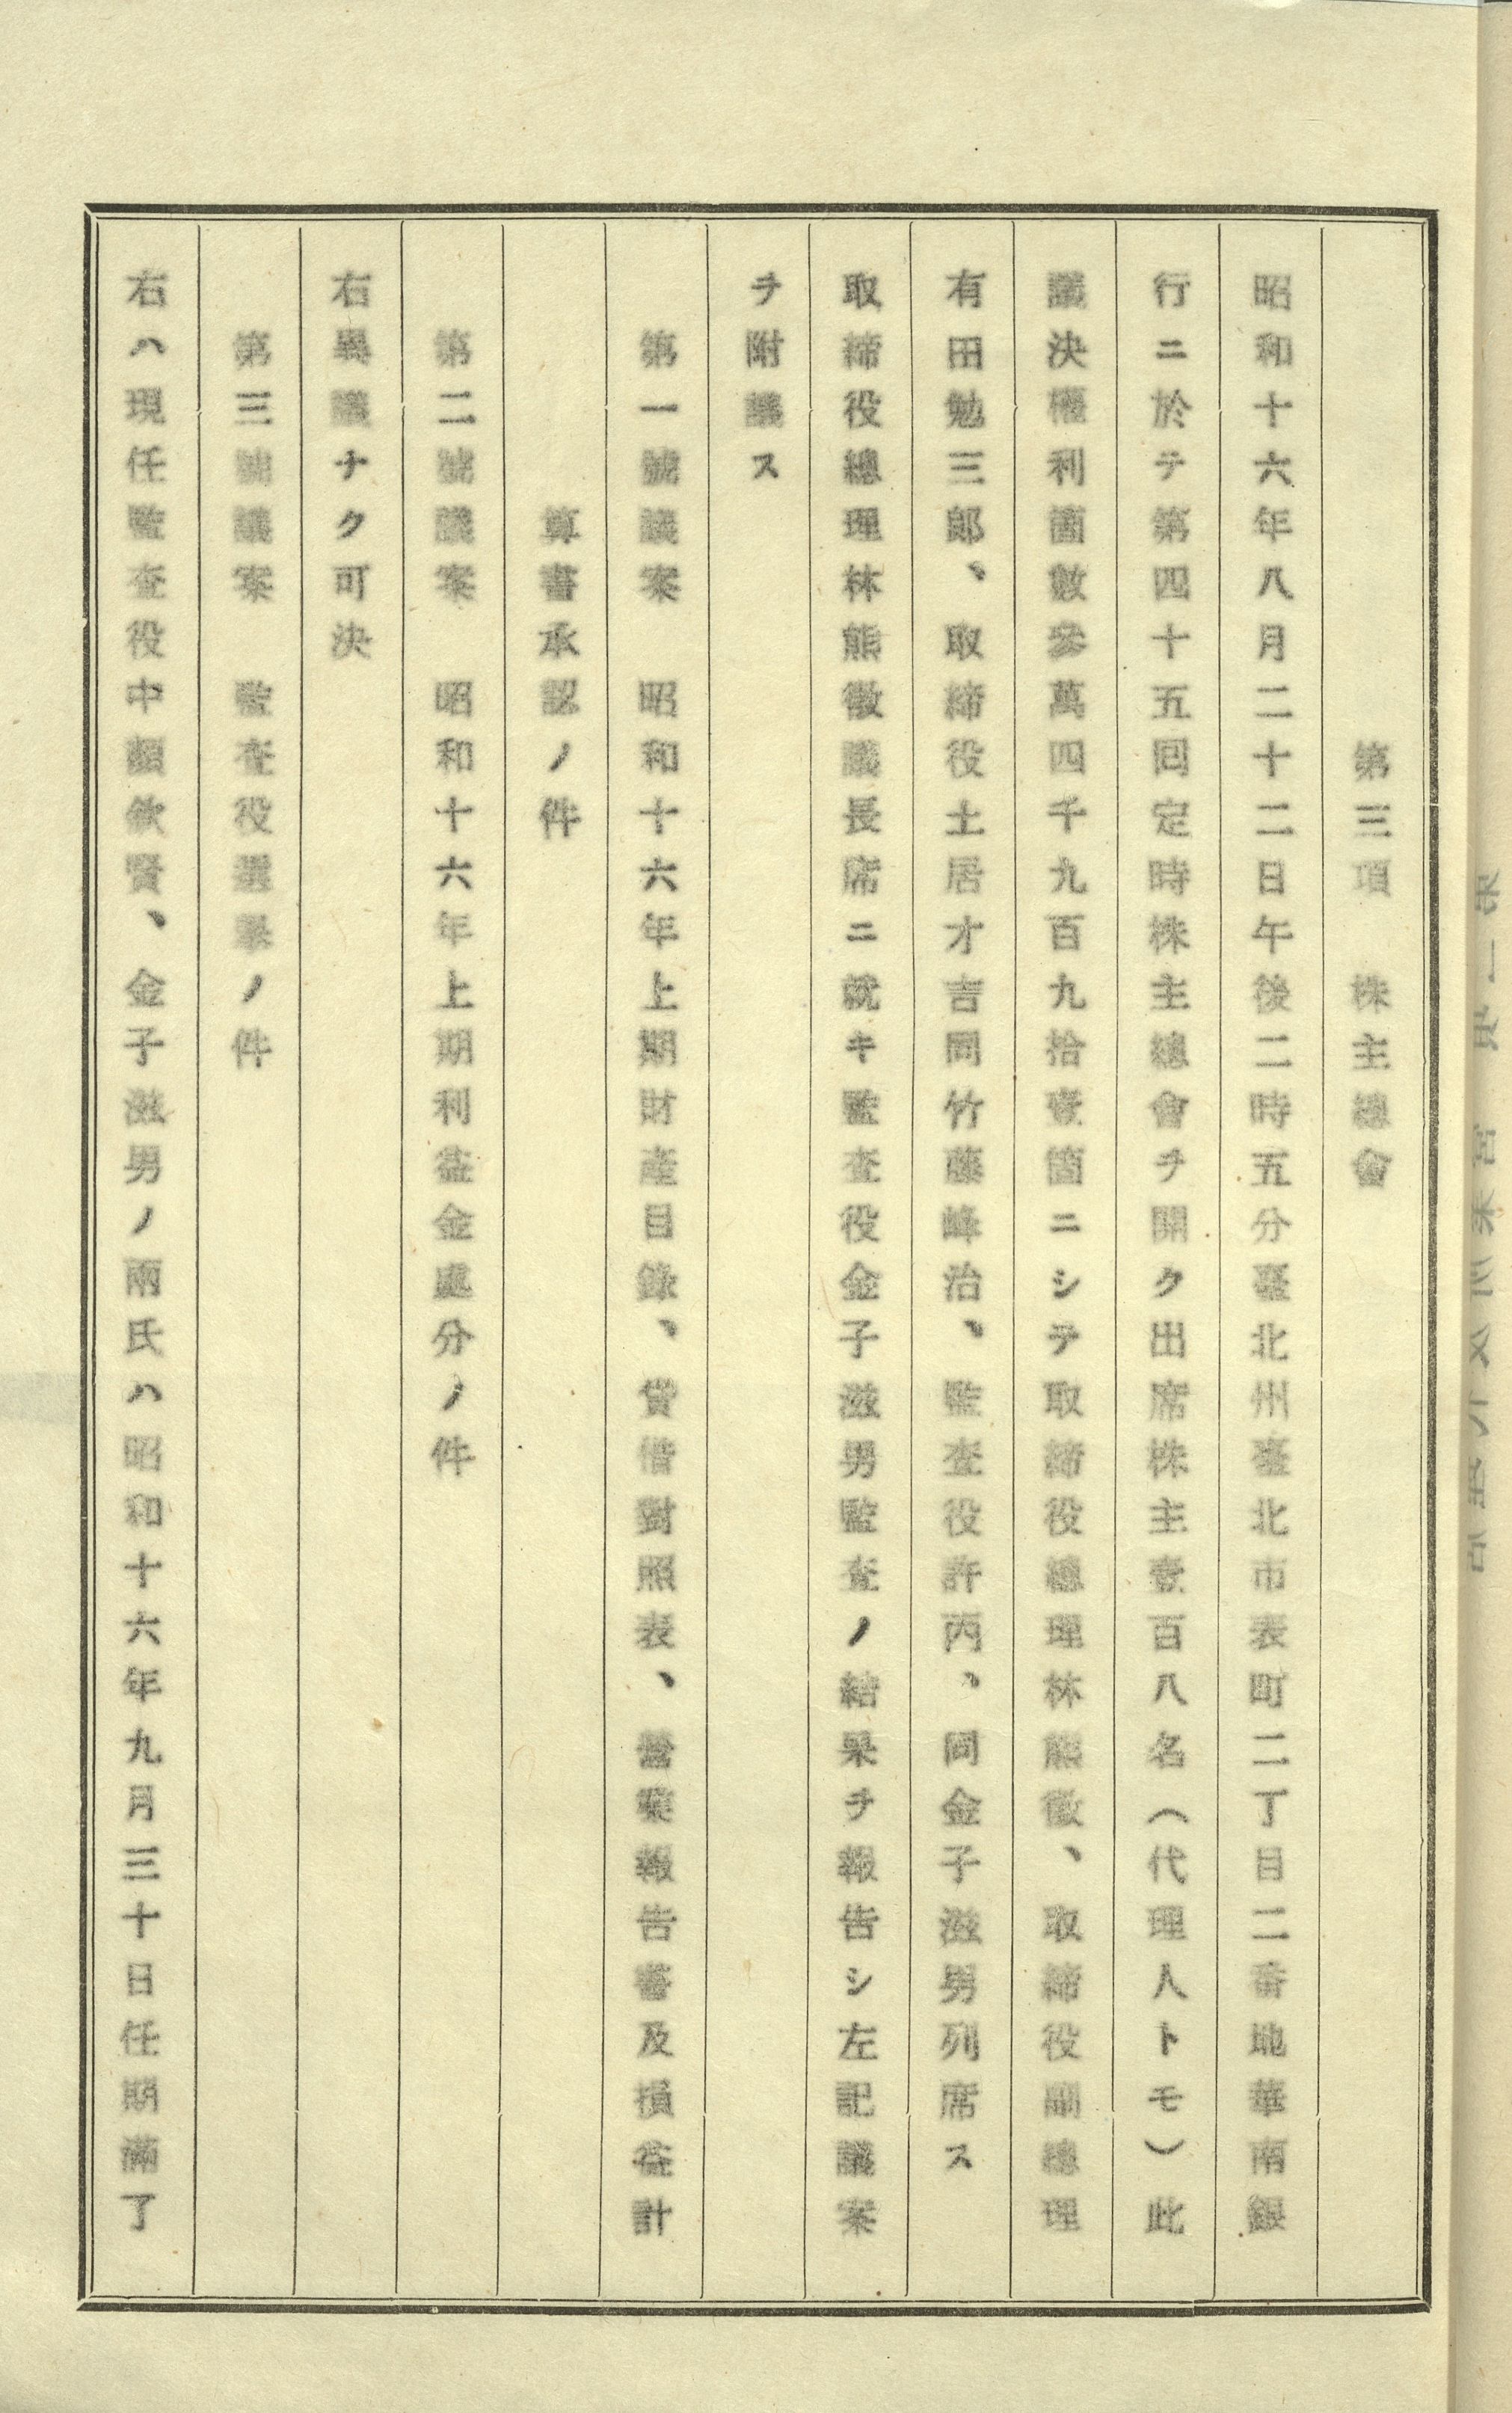 第三項　株主總會
昭和十六年八月二十二日午後二時五分臺北州臺北市表町二丁目二番地華南銀
行ニ於テ第四十五囘定時株主總會ヲ開ク出席株主壹百八名（代理人トモ）此
議決權利箇數參萬四千九百九拾壹箇ニシテ取締役總理林熊徵、取締役副總理
有田勉三郞、取締役土居才吉同竹藤峰治、監査役許丙、同金子滋男列席ス
取締役總理林熊徵議長席ニ就キ監査役金子滋男監査ノ結果ヲ報吿シ左記議案
ヲ附議ス
第一號議案　昭和十六年上期財產目錄、貸借對照表、營業報吿書及損益計
算書承認ノ件
第二號議案　昭和十六年上期利益金處分ノ件
右異議ナク可決
第三號議案　監査役選擧ノ件
右ハ現任監査役中顏欽賢、金子滋男ノ兩氏ハ昭和十六年九月三十日任期滿了